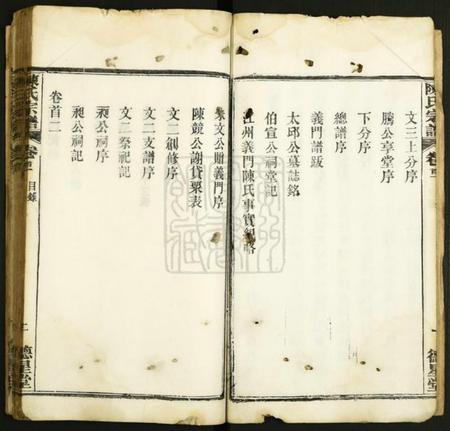 陳氏宗譜
卷首
一
德星堂
文三上分序
勝公享堂序
下分序
總譜序
義門譜跋
太邱公墓誌銘
伯宣公祠堂記
江州義門陳氏事實紀略
朱文公贈義門序
陳競公謝貸粟表
文二創修序
文二支譜序
文二祭祀記
昶公祠序
昶公祠記
卷首二
陳氏宗譜
目錄
二
德星堂